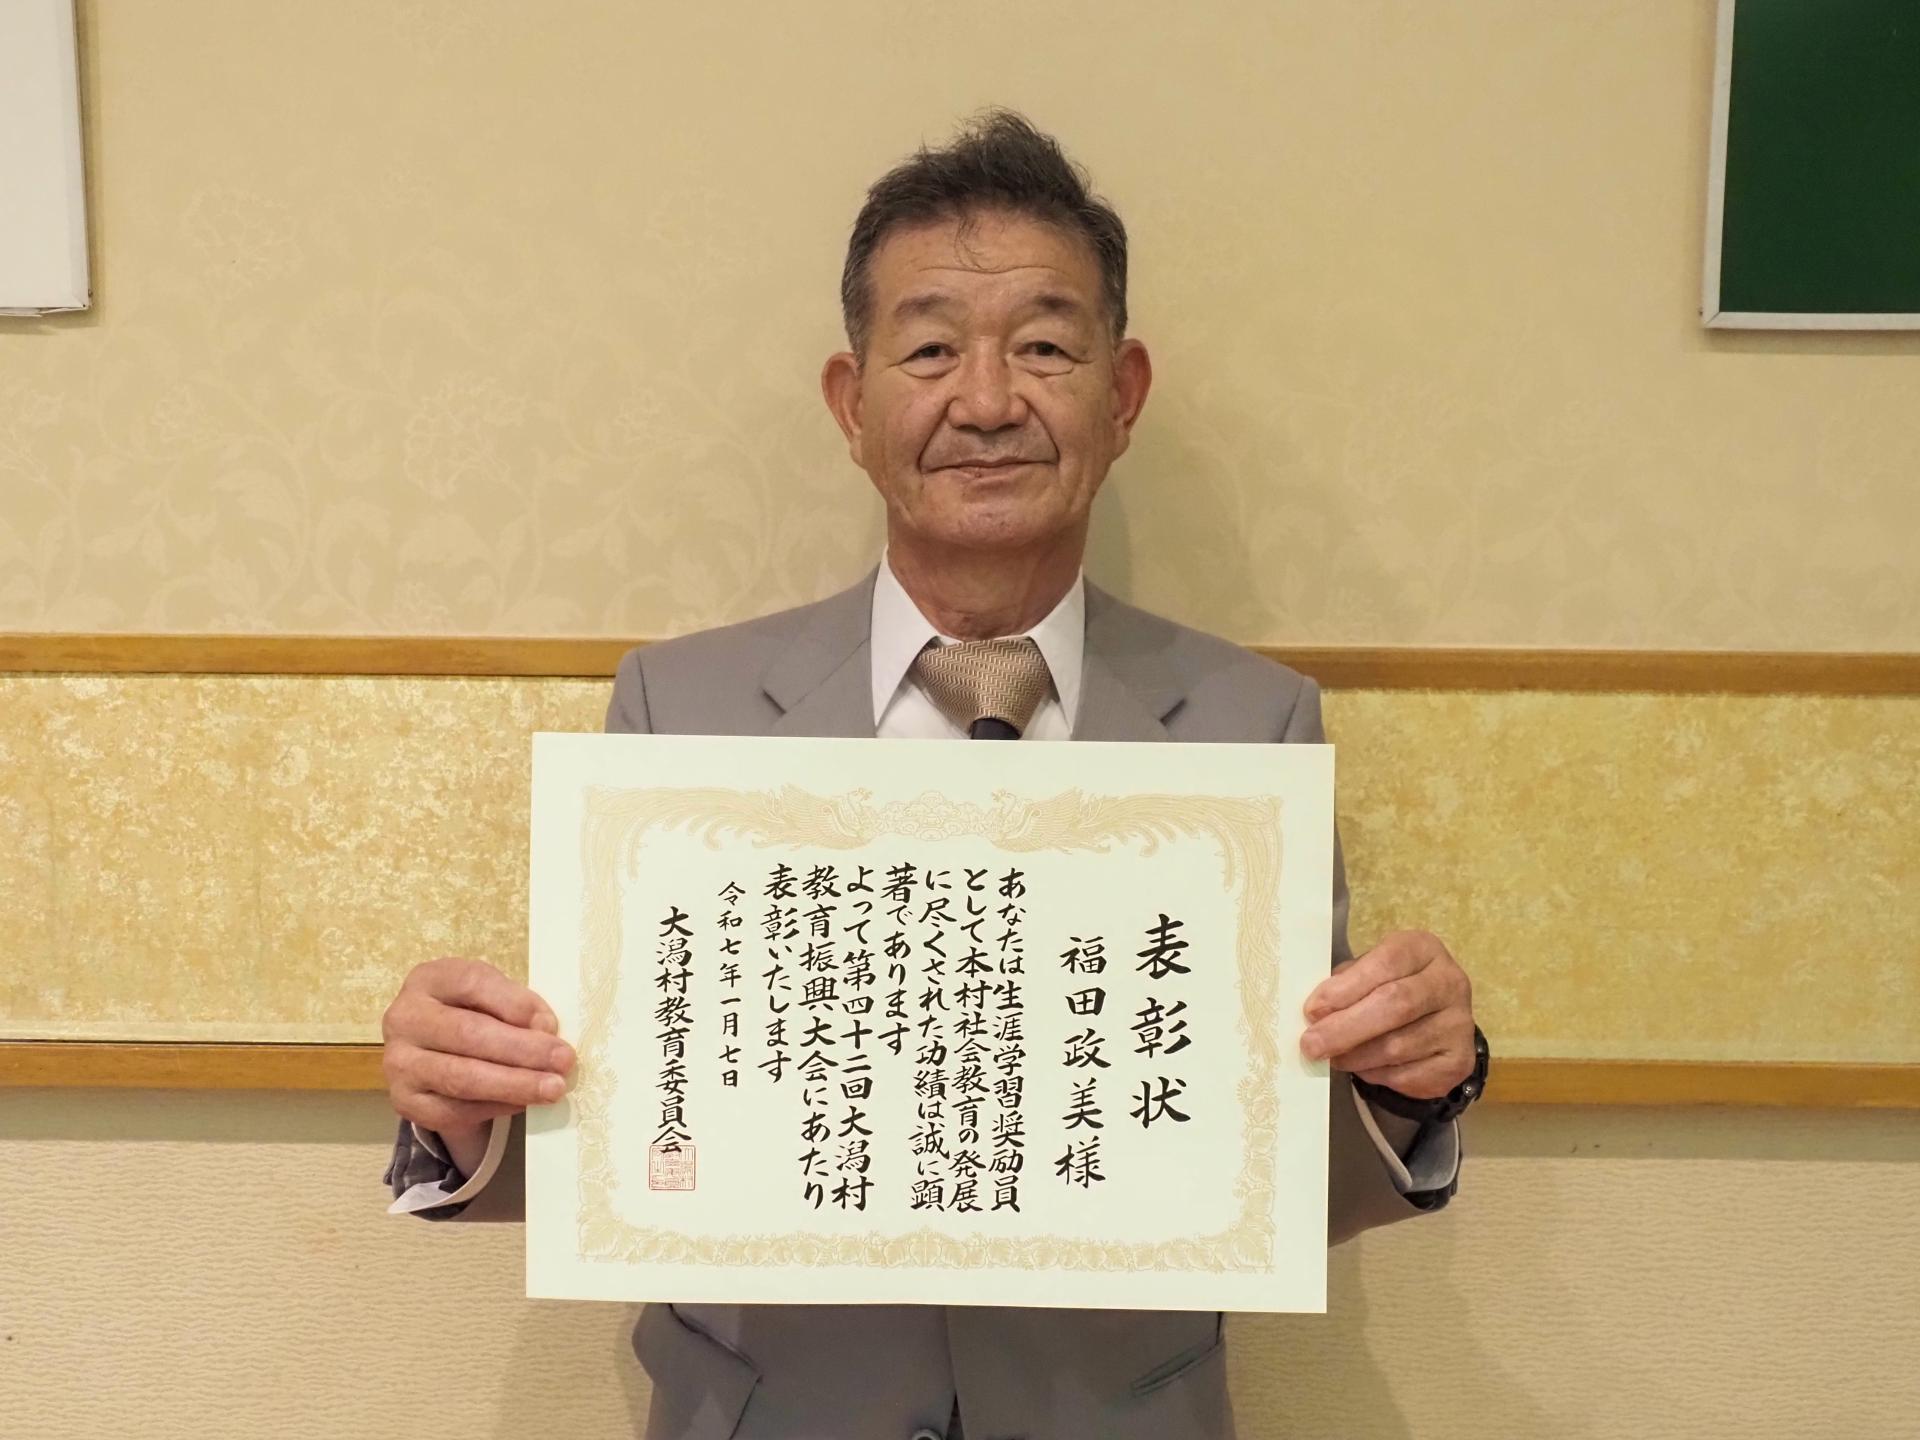 表彰状
福田政美様
あなたは生涯学習奨励員
として本村社会教育の発展
に尽くされた功績は誠に顕
著であります
よって第四十二回大潟村
教育振興大会にあたり
表彰いたします
令和七年一月七日
大潟村教育委員会